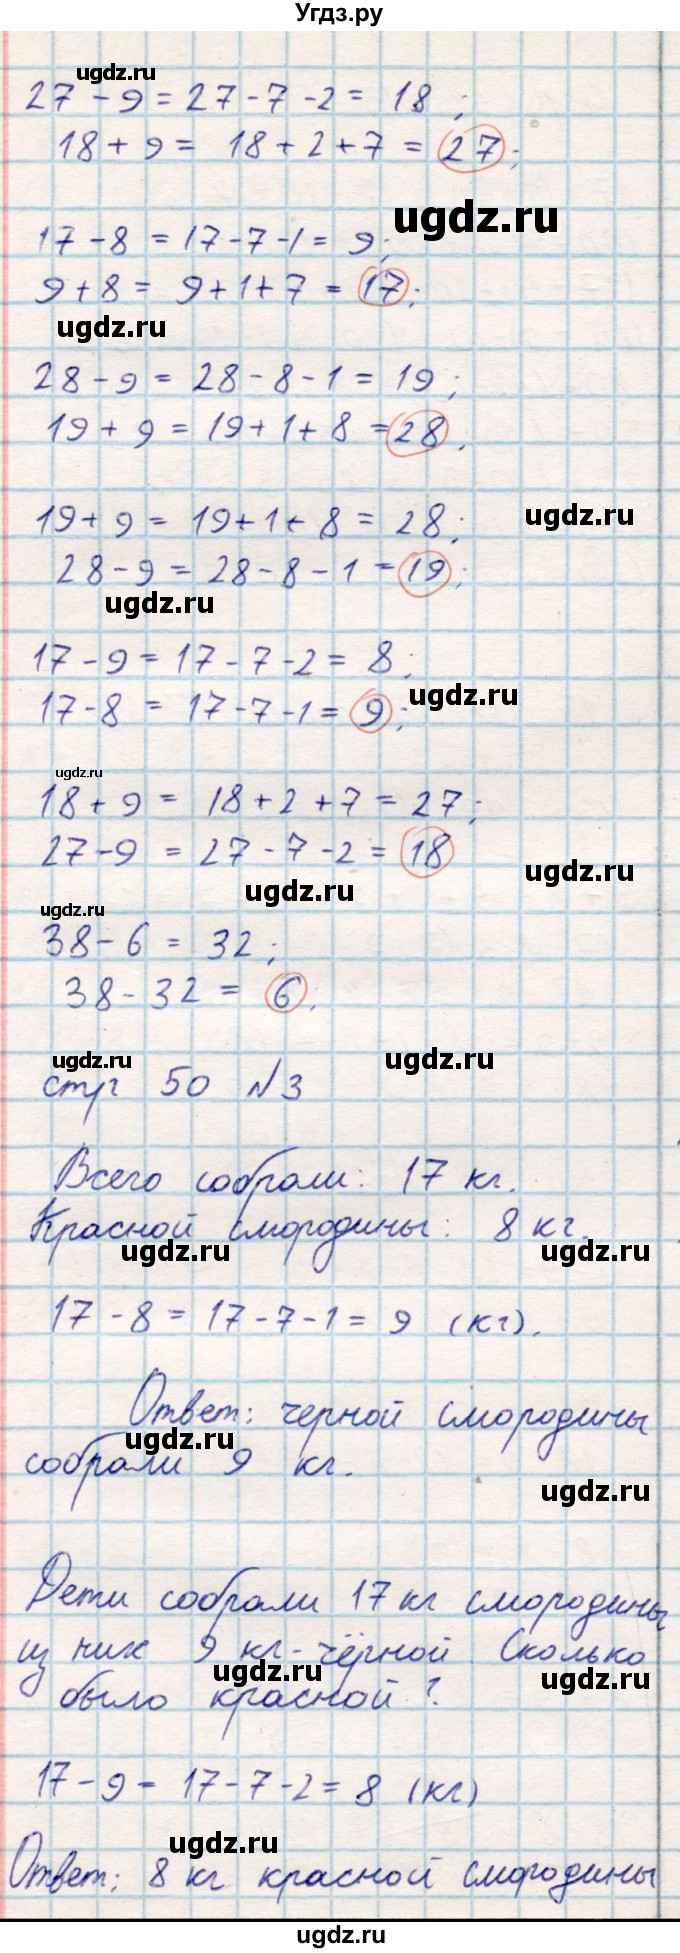 Угдз.ру
ugdz.ru
27 - 9 = 27 - 7 - 2 = 18 ;
18 + 9 = 18 + 2 + 7 = 27 ;
ugdz.ru
17 - 8 = 17 - 7 - 1 = 9 ;
9 + 8 = 9 + 1 + 7 = 17 ;
ugdz.ru
28 - 9 = 28 - 8 - 1 = 19 ;
19 + 9 = 19 + 1 + 8 = 28 .
19 + 9 = 19 + 1 + 8 = 28 ; ugdz.ru
28 - 9 = 28 - 8 - 1 = 19 ;
ugdz.ru
17 - 9 = 17 - 7 - 2 = 8 ;
ugdz.ru
17 - 8 = 17 - 7 - 1 = 9 ;
ugdz.ru
18 + 9 = 18 + 2 + 7 = 27 ;
27 - 9 = 27 - 7 - 2 = 18
ugdz.ru
ugdz.ru
ugdz.ru
38 - 6 = 32 ;
38 - 32 = 6 .
ugdz.ru ugdz.ru
стр 50 №3
Всего собрали: 17 кг.
Красной смородины: 8 кг.
ugdz.ru ugdz.ru
17 - 8 = 17 - 7 - 1 = 9 (кг).
Ответ: черной смородины
ugdz.ru
собрали 9 кг.
ugdz.ru
Дети собрали 17 кг смородины
из них 9 кг - чёрной Сколько
ugdz.ru ugdz.ru
было красной ?
17 - 9 = 17 - 7 - 2 = 8 (кг)
ugdz.ru
Ответ: 8 кг красной смородины
ugdz.ru